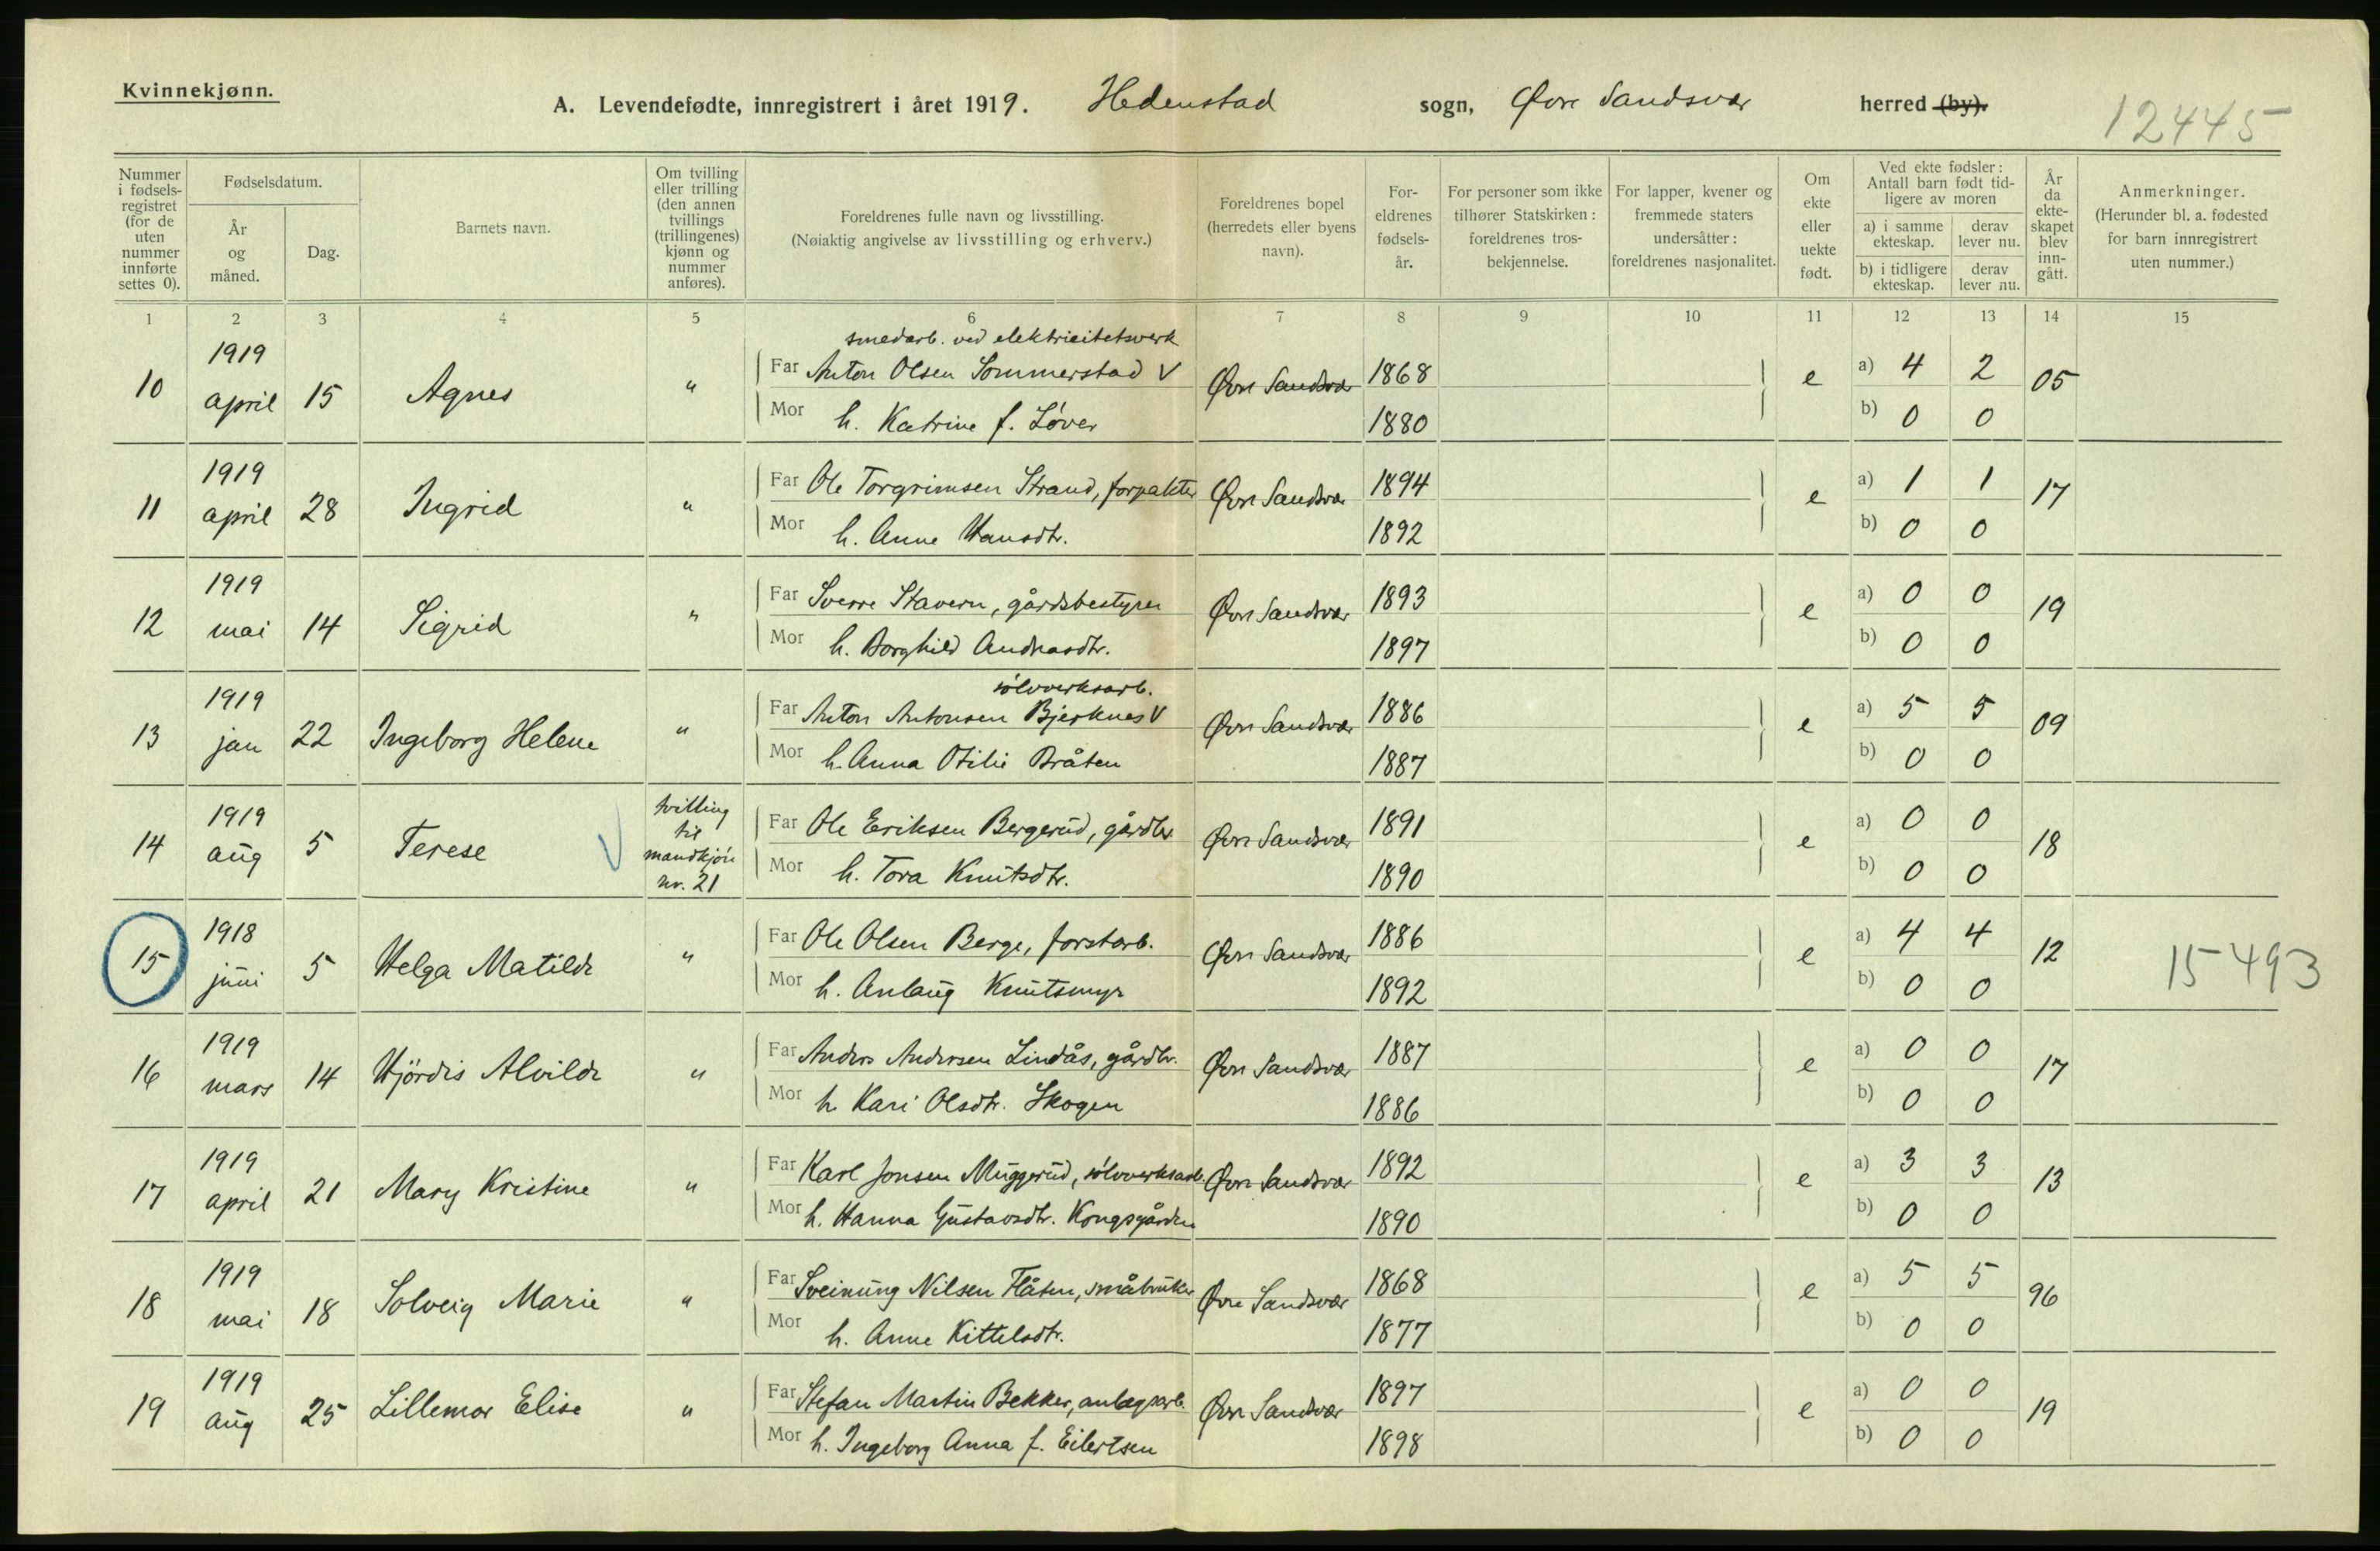 Kvinnekjønn.
A. Levendefødte, innregistrert i året 1919. Hedenstad sogn, Øvre Sandsvær herred (by).
12445
Nummer i fødsels-registret (for de uten nummer innførte settes 0).
Fødselsdatum.
År og måned.
Dag.
Barnets navn.
Om tvilling eller trilling (den annen tvillings (trillingenes) kjønn og nummer anføres).
Foreldrenes fulle navn og livsstilling.
(Nøiaktig angivelse av livsstilling og erhverv.)
Foreldrenes bopel (herredets eller byens navn).
For-eldrenes fødsels-år.
For personer som ikke tilhører Statskirken: foreldrenes tros-bekjennelse.
For lapper, kvener og fremmede staters undersåtter: foreldrenes nasjonalitet.
Om ekte eller uekte født.
Ved ekte fødsler: Antall barn født tid-ligere av moren
a) i samme ekteskap. derav lever nu.
b) i tidligere ekteskap. derav lever nu.
År da ekte-skapet blev inn-gått.
Anmerkninger.
(Herunder bl. a. fødested for barn innregistrert uten nummer.)
1 2 3 4 5 6 7 8 9 10 11 12 13 14 15
smedarb. ved elektricitetsverk
10 1919 april 15 Agnes " Far Anton Olsen Sommerstad V Øvre Sandsvær 1868 e a) 4 2 05
Mor h. Katrine f. Løver 1880 b) 0 0
11 1919 april 28 Ingrid " Far Ole Torgrimsen Strand, forpakter Øvre Sandsvær 1894 e a) 1 1 17
Mor h. Anne Hansdtr. 1892 b) 0 0
12 1919 mai 14 Sigrid " Far Sverre Stavern, gårdsbestyrer Øvre Sandsvær 1893 e a) 0 0 19
Mor h. Borghild Andreasdtr. 1897 b) 0 0
sølvverksarb.
13 1919 jan 22 Ingeborg Helene " Far Anton Antonsen Bjerknes V Øvre Sandsvær 1886 e a) 5 5 09
Mor h. Anna Otilie Bråten 1887 b) 0 0
14 1919 aug 5 Terese tvilling til mandkjøn nr. 21 Far Ole Eriksen Bergerud, gårdbr. Øvre Sandsvær 1891 e a) 0 0 18
Mor h. Tora Knutsdtr. 1890 b) 0 0
15 1918 juni 5 Helga Matilde " Far Ole Olsen Berge, forstarb. Øvre Sandsvær 1886 e a) 4 4 12 15493
Mor h. Anlaug Knutsmyr 1892 b) 0 0
16 1919 mars 14 Hjördis Alvilde " Far Anders Andersen Lindås, gårdbr. Øvre Sandsvær 1887 e a) 0 0 17
Mor h. Kari Olsdtr. Skogen 1886 b) 0 0
17 1919 april 21 Mary Kristine " Far Karl Jonsen Muggerud, sølvverksarb. Øvre Sandsvær 1892 e a) 3 3 13
Mor h. Hanna Gustavsdtr. Kongsgården 1890 b) 0 0
18 1919 mai 18 Solveig Marie " Far Sveinung Nilsen Flåten, småbruker Øvre Sandsvær 1868 e a) 5 5 96
Mor h. Anne Kittelsdtr. 1877 b) 0 0
19 1919 aug 25 Lillemor Elise " Far Stefan Martin Bekker, anlegsarb. Øvre Sandsvær 1897 e a) 0 0 19
Mor h. Ingeborg Anna f. Eilertsen 1898 b) 0 0